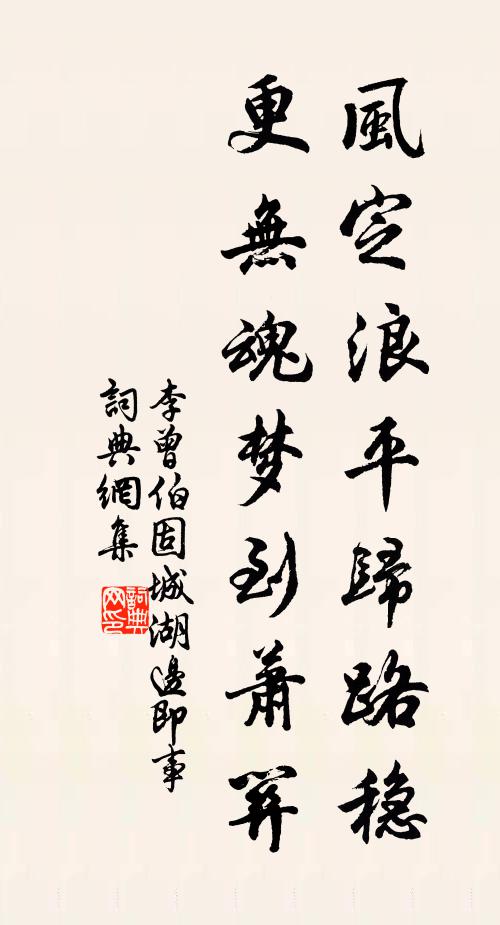 風定浪平歸路稳
更無魂梦到蕭關
李曾伯固城湖邊即事
詞典網集
詞典网印